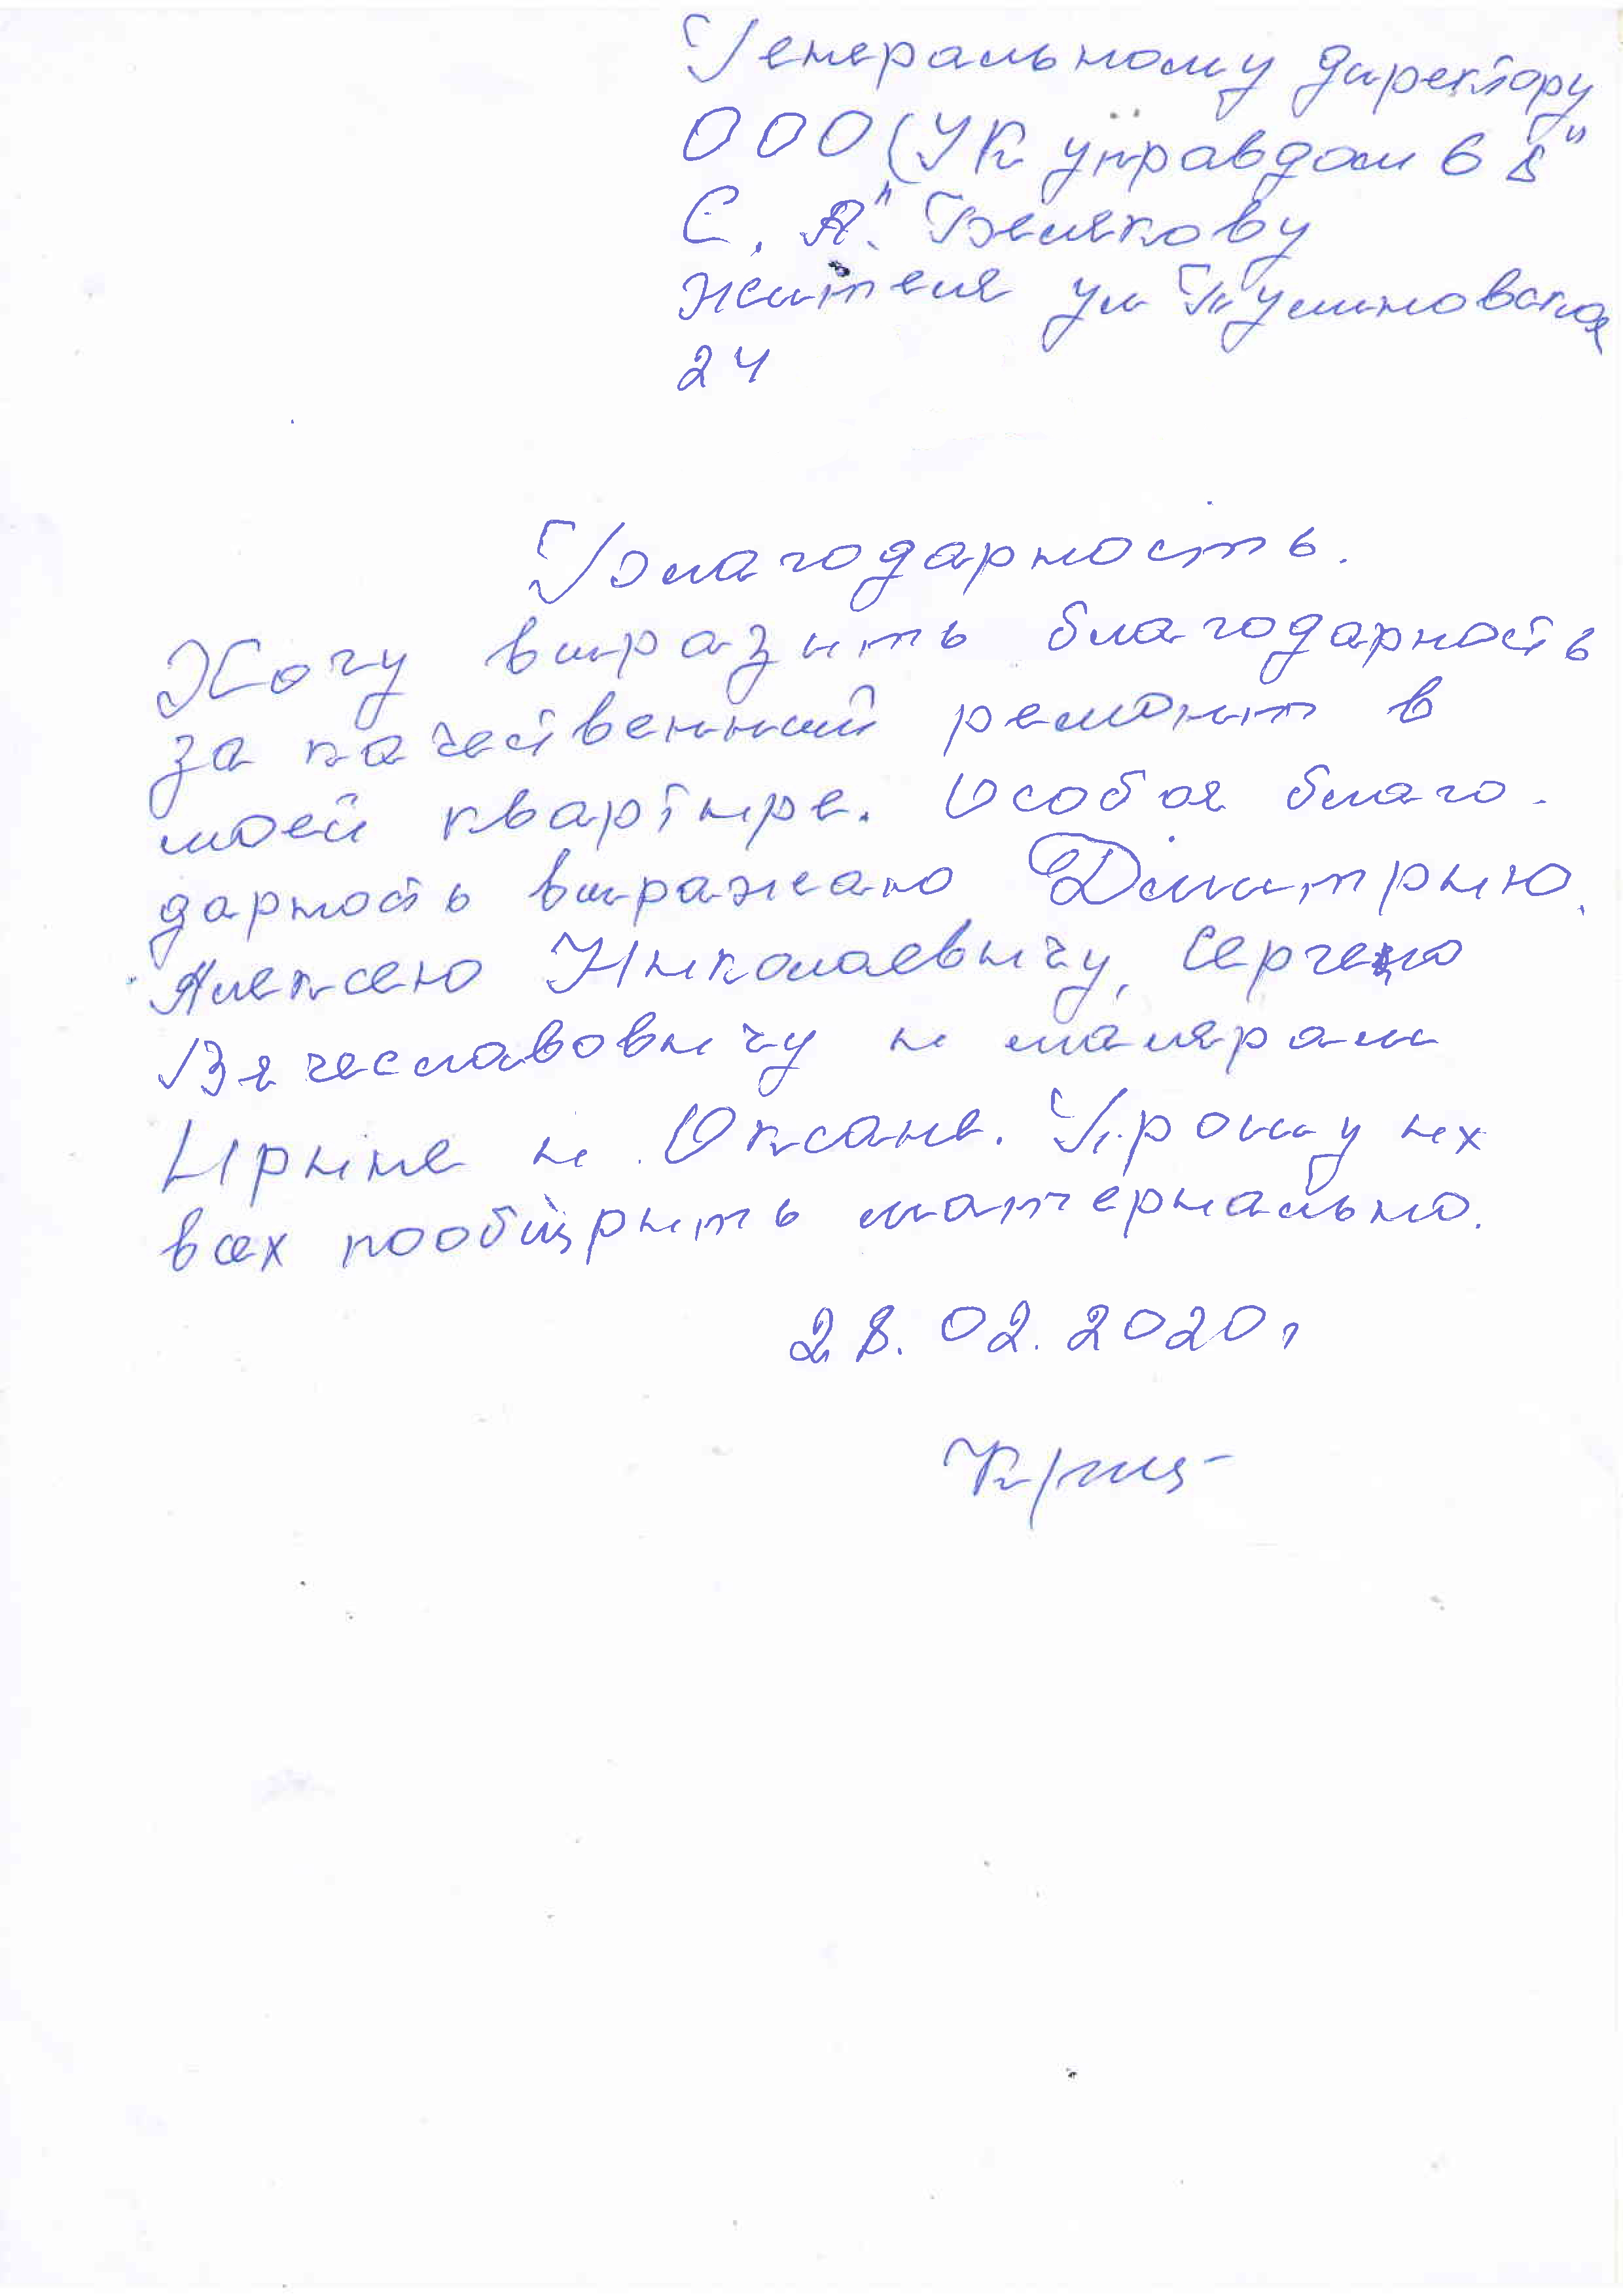 Генеральному директору
ООО (УК управдом 6 "
С. А." Белякову
жителя ул Тушиновская
24
Благодарность.
Хочу выразить благодарность
за качественный ремонт в
моей квартире. Особоя благо-
дарность выражаю Дмитрию,
Алексею Николаевичу, Сергею
Вячеславовичу и малярам
Ирине и Оксане. Прошу их
всех пообщрить материально.
28.02.2020г